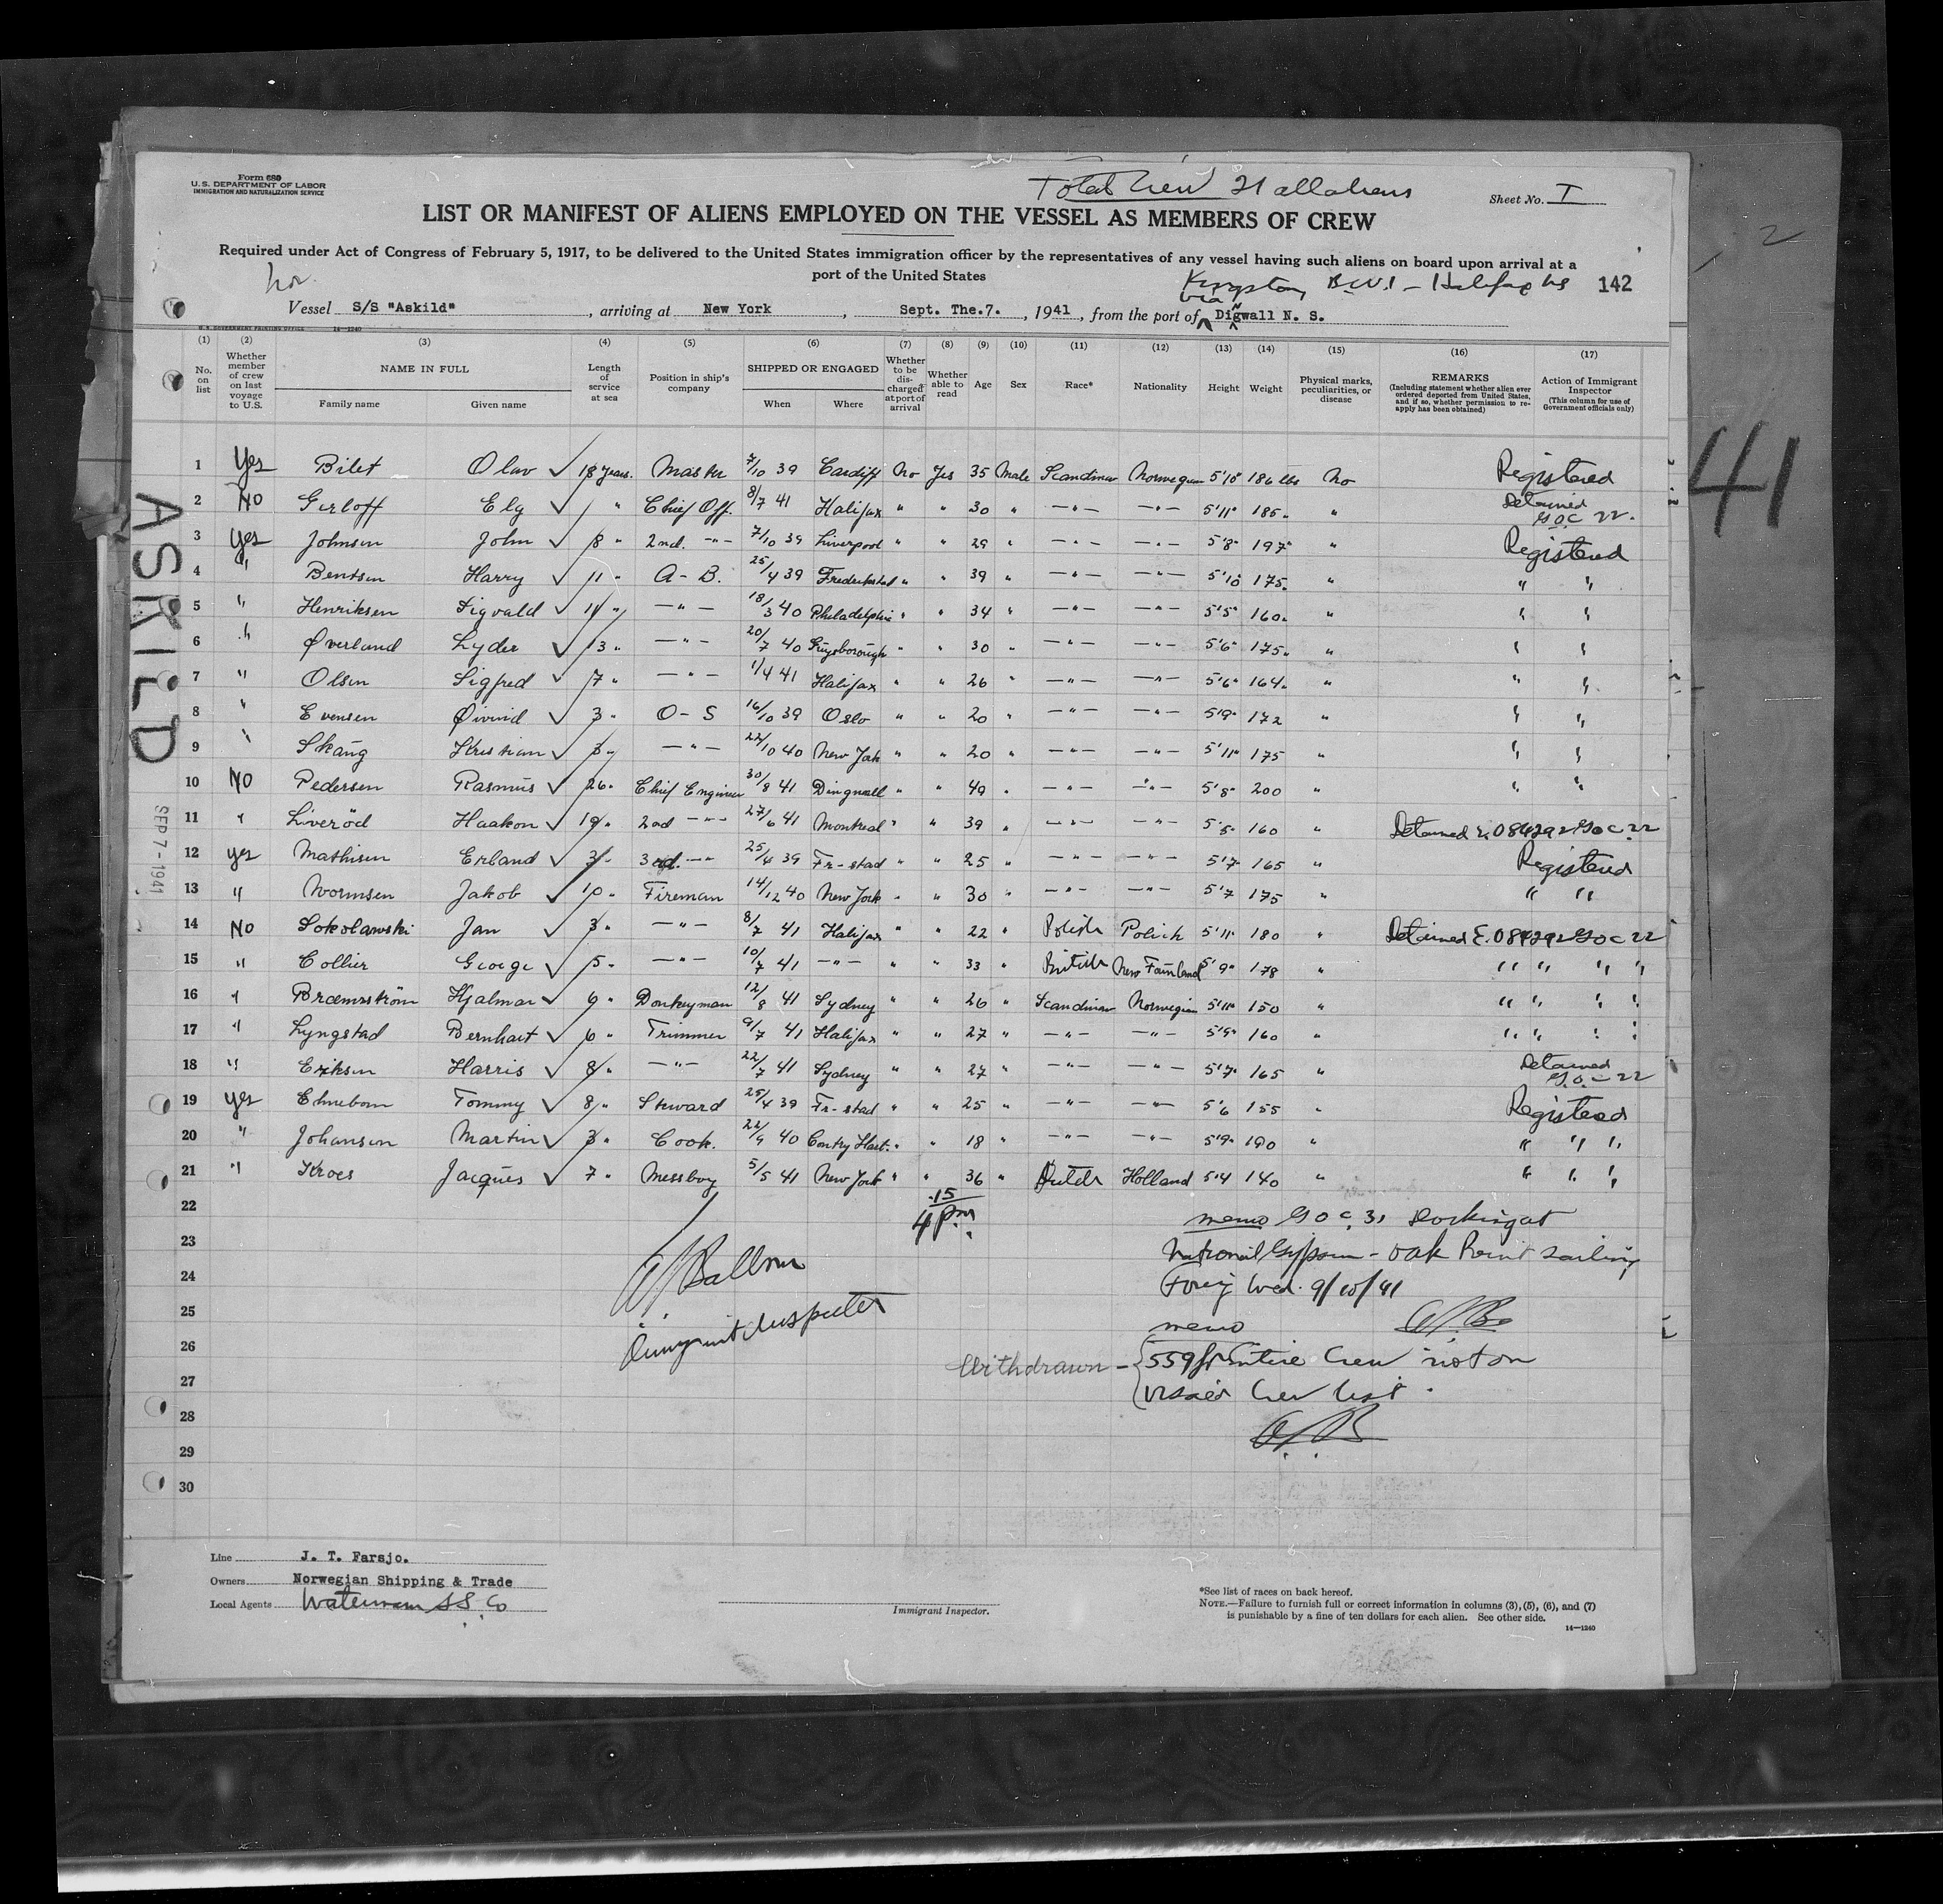 Form 680
U.S. DEPARTMENT OF LABOR
IMMIGRATION AND NATURALIZATION SERVICE
Total Crew 21 all aliens
Sheet No. I
LIST OR MANIFEST OF ALIENS EMPLOYED ON THE VESSEL AS MEMBERS OF CREW
Required under Act of Congress of February 5, 1917, to be delivered to the United States immigration officer by the representatives of any vessel having such aliens on board upon arrival at a
port of the United States
Nor.
Kingston B.W.I - Halifax NS
142
Vessel S/S "Askild", arriving at New York, Sept. The.7., 1941, from the port of via Digwall N. S.
U.S. GOVERNMENT PRINTING OFFICE 14—1240
(1) No. on list (2) Whether member of crew on last voyage to U.S. (3) NAME IN FULL Family name Given name (4) Length of service at sea (5) Position in ship's company (6) SHIPPED OR ENGAGED When Where (7) Whether to be discharged at port of arrival (8) Whether able to read (9) Age (10) Sex (11) Race* (12) Nationality (13) Height (14) Weight (15) Physical marks, peculiarities, or disease (16) REMARKS (Including statement whether alien ever ordered deported from United States, and if so, whether permission to reapply has been obtained) (17) Action of Immigrant Inspector (This column for use of Government officials only)
1 Yes Bilet Olav ✓ 18 years. Master 7/10 39 Cardiff No Yes 35 Male Scandinav Norwegian 5'10" 186 lbs No Registered
2 No Gerloff Ely ✓ " Chief Off. 8/7 41 Halifax " " 30 " —"— —"— 5'11" 185 " Detained GOC 22.
3 Yes Johnsen John ✓ 8 " 2nd. —"— 7/10 39 Liverpool " " 29 " —"— —"— 5'8" 197 " Registered
4 " Bentsen Harry ✓ 11 " A-B. 25/4 39 Frederikstad " " 39 " —"— —"— 5'10 175 " " "
5 " Henriksen Sigvald ✓ 11 " —"— 18/3 40 Philadelphia " " 34 " —"— —"— 5'5" 160 " " "
6 " Øverland Lyder ✓ 13 " —"— 20/7 40 " " 30 " —"— —"— 5'6" 175 " " "
7 " Olsen Sigfred ✓ 7 " —"— 1/4 41 Halifax " " 26 " —"— —"— 5'6" 164 " " "
8 " Evensen Øivind ✓ 3 " O-S 16/10 39 Oslo " " 20 " —"— —"— 5'9" 172 " " "
9 " Skaug Kristian ✓ 3 " —"— 22/10 40 New York " " 20 " —"— —"— 5'11" 175 " " "
10 No Pedersen Rasmus ✓ 26 " Chief Engineer 30/8 41 Dingwall " " 49 " —"— —"— 5'8" 200 " " "
11 " Liveröd Haakon ✓ 19 " 2nd —"— 27/6 41 Montreal " " 39 " —"— —"— 5'5" 160 " Detained E.084292 GOC 22
12 yes Mathisen Erland ✓ 3 " 3rd. —"— 25/4 39 Fr-stad " " 25 " —"— —"— 5'7" 165 " Registered
13 " Wormsen Jakob ✓ 10 " Fireman 14/12 40 New York " " 30 " —"— —"— 5'7 175 " " "
14 No Sokolawski Jan ✓ 3 " —"— 8/7 41 Halifax " " 22 " Polish Polish 5'11" 180 " Detained E.084292 GOC 22
15 " Collier George ✓ 5 " —"— 10/7 41 —"— " " 33 " British New Founland 5'9" 178 " " " " "
16 " Hjalmar ✓ 9 " Donkeyman 12/8 41 Sydney " " 26 " Scandinav Norwegian 5'11" 150 " " " " "
17 " Lyngstad Bernhart ✓ 6 " Trimmer 9/7 41 Halifax " " 27 " —"— —"— 5'9" 160 " " " " "
18 " Eriksen Harris ✓ 8 " —"— 22/7 41 Sydney " " 27 " —"— —"— 5'7" 165 " Detained GOC 22
19 Yes Tommy ✓ 8 " Steward 25/4 39 Fr-stad " " 25 " —"— —"— 5'6 155 " Registered
20 " Johansen Martin ✓ 3 " Cook. 22/9 40 " " 18 " —"— —"— 5'9" 190 " " " "
21 " Kroes Jacques ✓ 7 " Messboy 5/5 41 New York " " 36 " Dutch Holland 5'4 140 " " " "
22
4 15 pm.
memo GOC 31 Docking at
23
National Gypsum - Oak Point sailing
24
Foreig Wed. 9/10/41
25
Immigrant Inspector
memo
26
Withdrawn - 559 for Entire Crew not on
27
visaed Crew list.
28
29
30
ASKILD
SEP 7-1941
41
2
Line J. T. Farsjo.
Owners Norwegian Shipping & Trade
Local Agents Waterman S.S. Co
Immigrant Inspector.
*See list of races on back hereof.
NOTE.—Failure to furnish full or correct information in columns (3), (5), (6), and (7)
is punishable by a fine of ten dollars for each alien. See other side.
14—1240